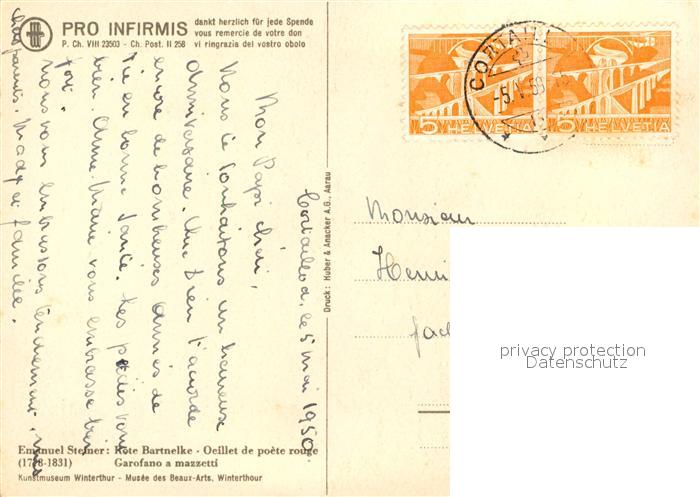 PRO INFIRMIS
P. Ch. VIII 23503 - Ch. Post. II 258
dankt herzlich für jede Spende
vous remercie de votre don
vi ringrazia del vostro obolo
Cortaillod, le 5 mai 1950.
Mon Papi chéri,
Nous te souhaitons un heureux
anniversaire. Que Dieu t'accorde
encore de nombreuses années de
vie en bonne santé. Les petits vont
bien. Anne-Marie vous embrasse bien
fort.
Nous vous embrassons tendrement,
et famille.
Emanuel Steiner: Rote Bartnelke - Oeillet de poète rouge
(1778-1831) Garofano a mazzetti
Kunstmuseum Winterthur - Musée des Beaux-Arts, Winterthour
Druck: Huber & Anacker A.G., Aarau
CORTAILL
-5.V.50
5 HELVETIA
5 HELVETIA
Monsieur
Henri
privacy protection
Datenschutz